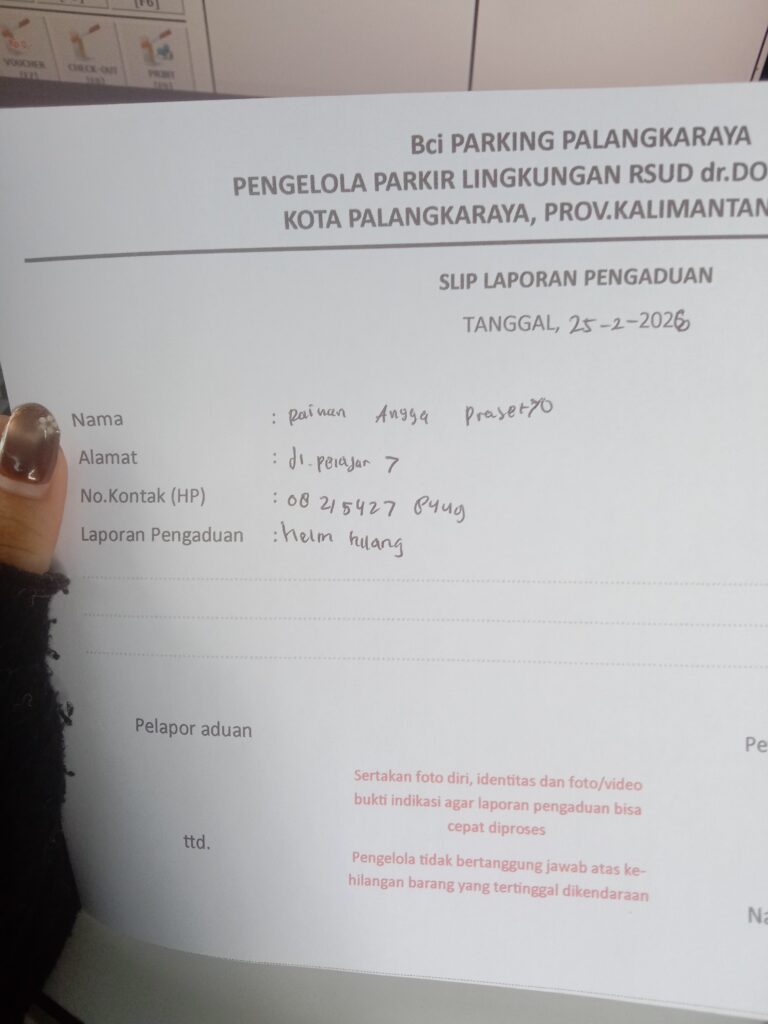 [F6]
VOUCHER
CHECK-OUT
PRINT
Bci PARKING PALANGKARAYA
PENGELOLA PARKIR LINGKUNGAN RSUD dr.DO
KOTA PALANGKARAYA, PROV.KALIMANTAN
SLIP LAPORAN PENGADUAN
TANGGAL, 25-2-2026
Nama : Rainan Angga Prasetyo
Alamat : Jl. pelajar 7
No.Kontak (HP) : 08 215427 8449
Laporan Pengaduan : helm hilang
Pelapor aduan
Pe
Sertakan foto diri, identitas dan foto/video
bukti indikasi agar laporan pengaduan bisa
cepat diproses
ttd.
Pengelola tidak bertanggung jawab atas ke-
hilangan barang yang tertinggal dikendaraan
Na